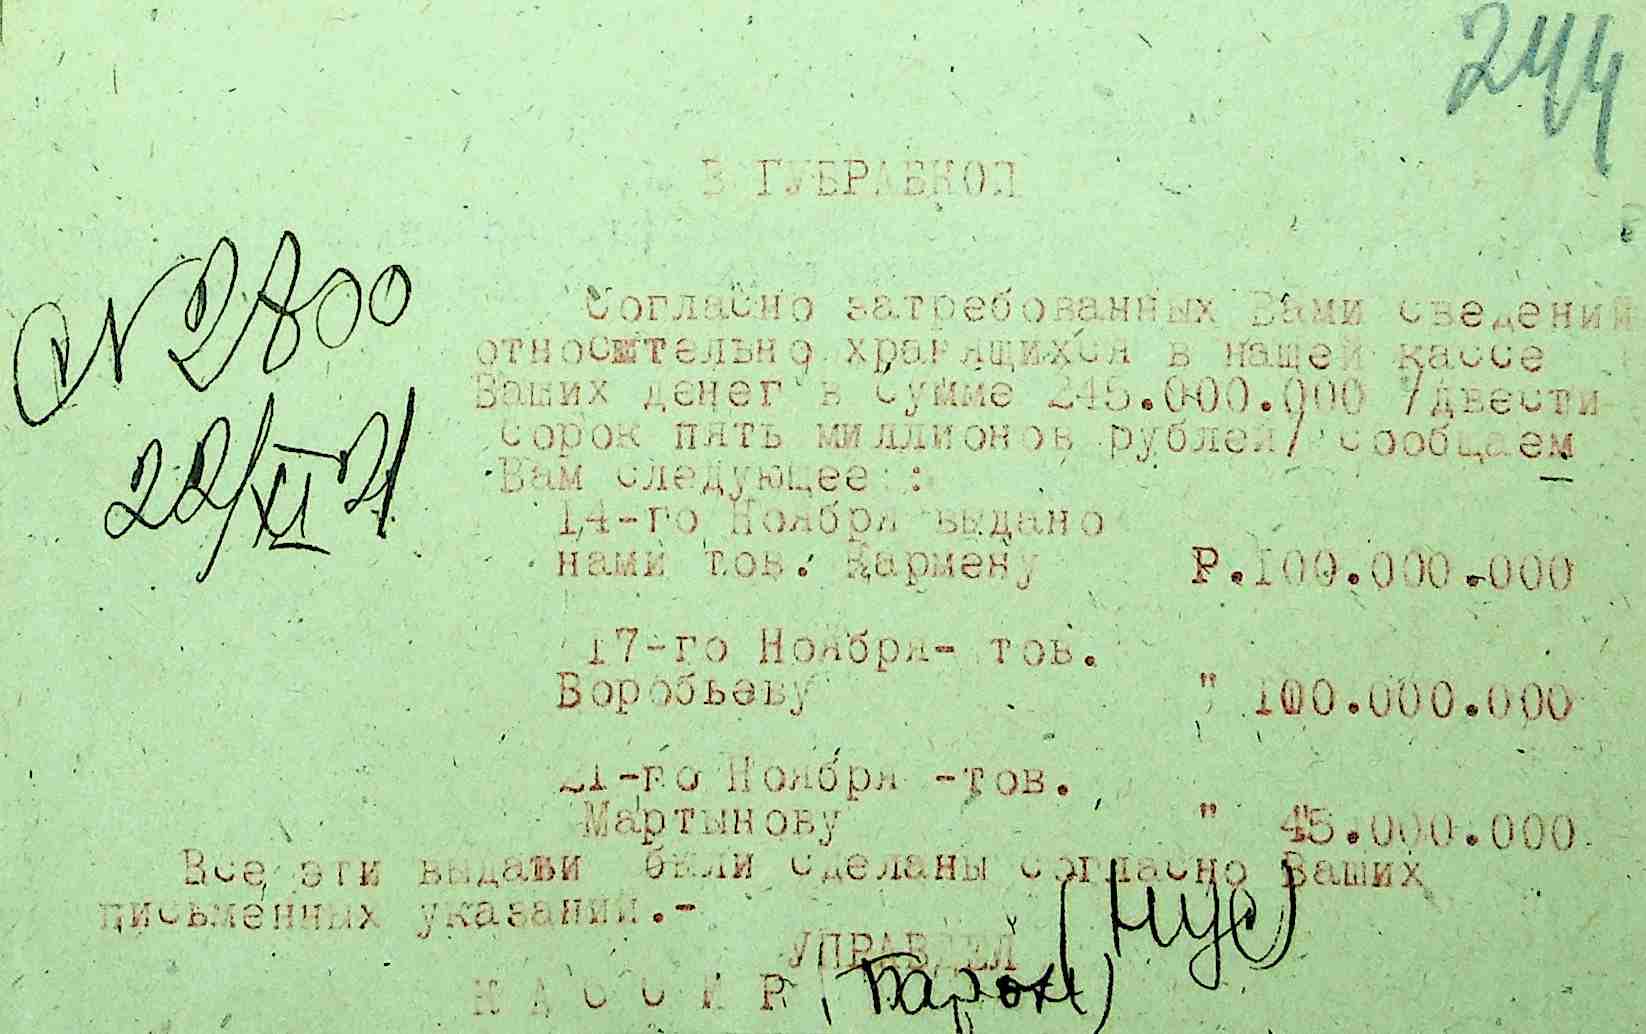 244
В ГУБРАБКОП
№ 2800
22/XI 21
Согласно затребованных Вами сведений
относительно хранящихся в нашей кассе
Ваших денег в сумме 245.000.000 /двести
сорок пять миллионов рублей/ сообщаем
Вам следующее :
14-го Ноября выдано
нами тов. Кармену Р.100.000.000
17-го Ноября- тов.
Воробьеву " 100.000.000
21-го Ноября -тов.
Мартынову " 45.000.000
Все эти выдачи были сделаны согласно Ваших
письменных указаний.-
УПРАВДЕЛ
КАССИР (Барон)